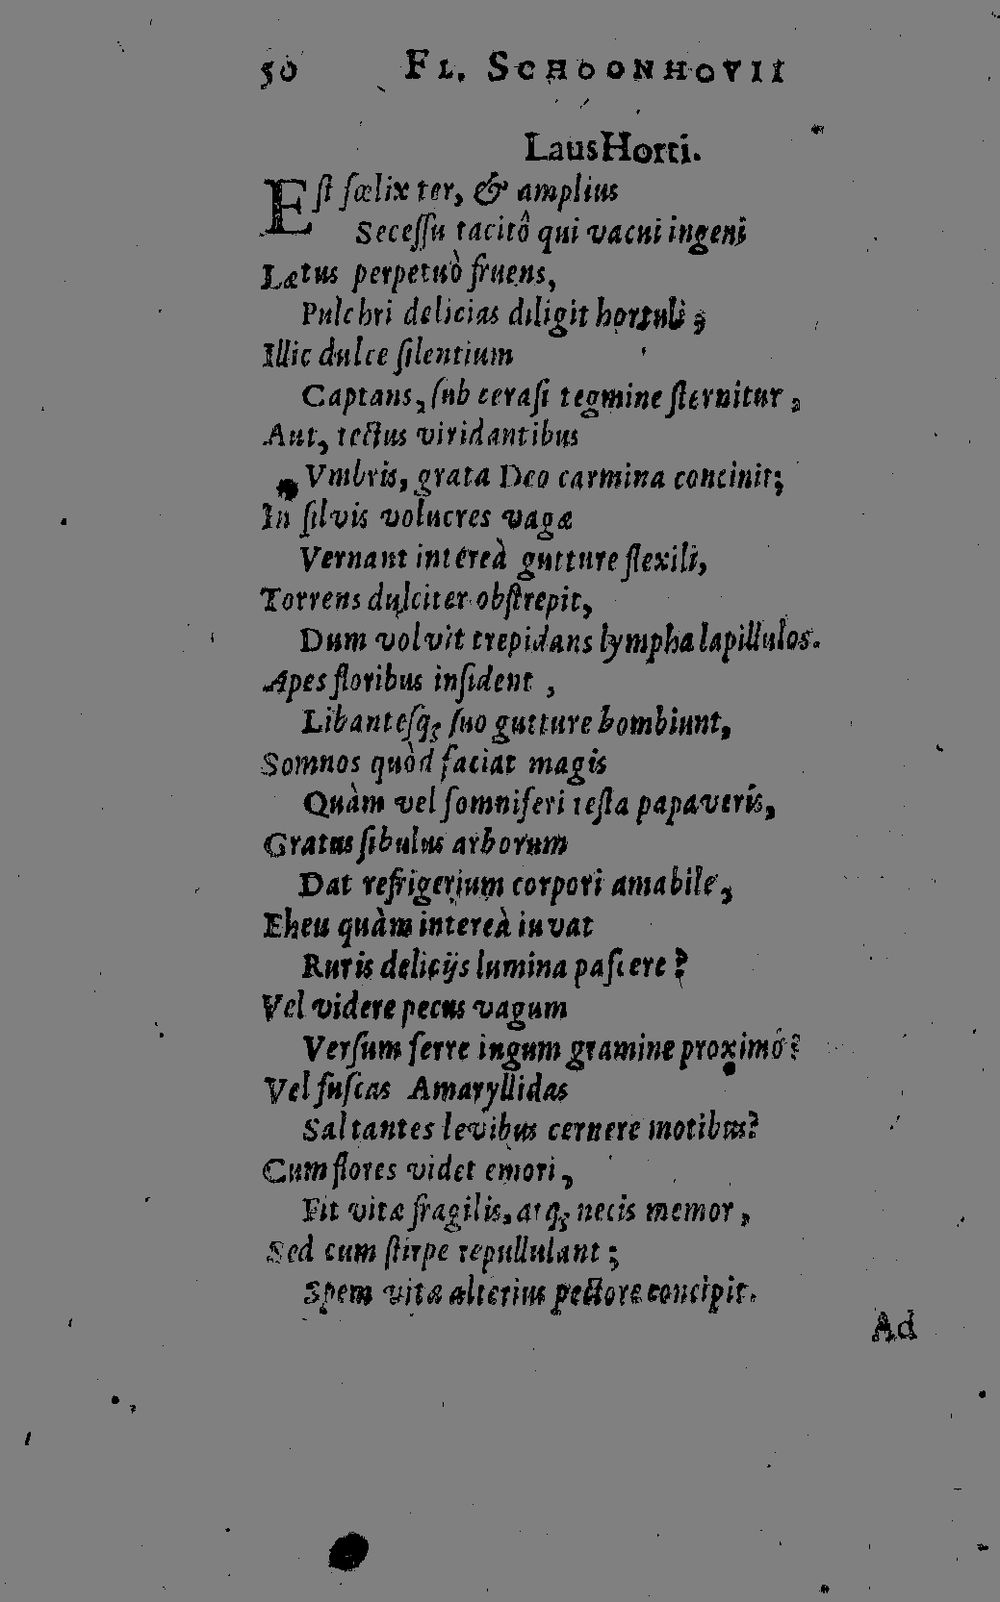 50 FL. SCHOONHOVII
Laus Horti.
Est fœlix ter, & amplius
Secessu tacitô qui vacui ingenî
Lætus perpetuò fruens,
Pulchri delicias diligit hortuli;
Illic dulce silentium
Captans, sub cerasi tegmine sternitur,
Aut, tectus viridantibus
Vmbris, grata Deo carmina concinit;
In silvis volucres vagæ
Vernant intereà gutture flexili,
Torrens dulciter obstrepit,
Dum volvit trepidans lympha lapillulos.
Apes floribus insident,
Libantesq; suo gutture bombiunt,
Somnos quòd faciat magis
Quàm vel somniferi testa papaveris,
Gratus sibulus arborum
Dat refrigerium corpori amabile,
Eheu quàm intereà iuvat
Ruris delicijs lumina pascere?
Vel videre pecus vagum
Versum ferre iugum gramine proximô?
Vel fuscas Amaryllidas
Saltantes levibus cernere motibus?
Cum flores videt emori,
Fit vitæ fragilis, atq; necis memor,
Sed cum stirpe repullulant;
Spem vitæ alterius pectore concipit.
Ad